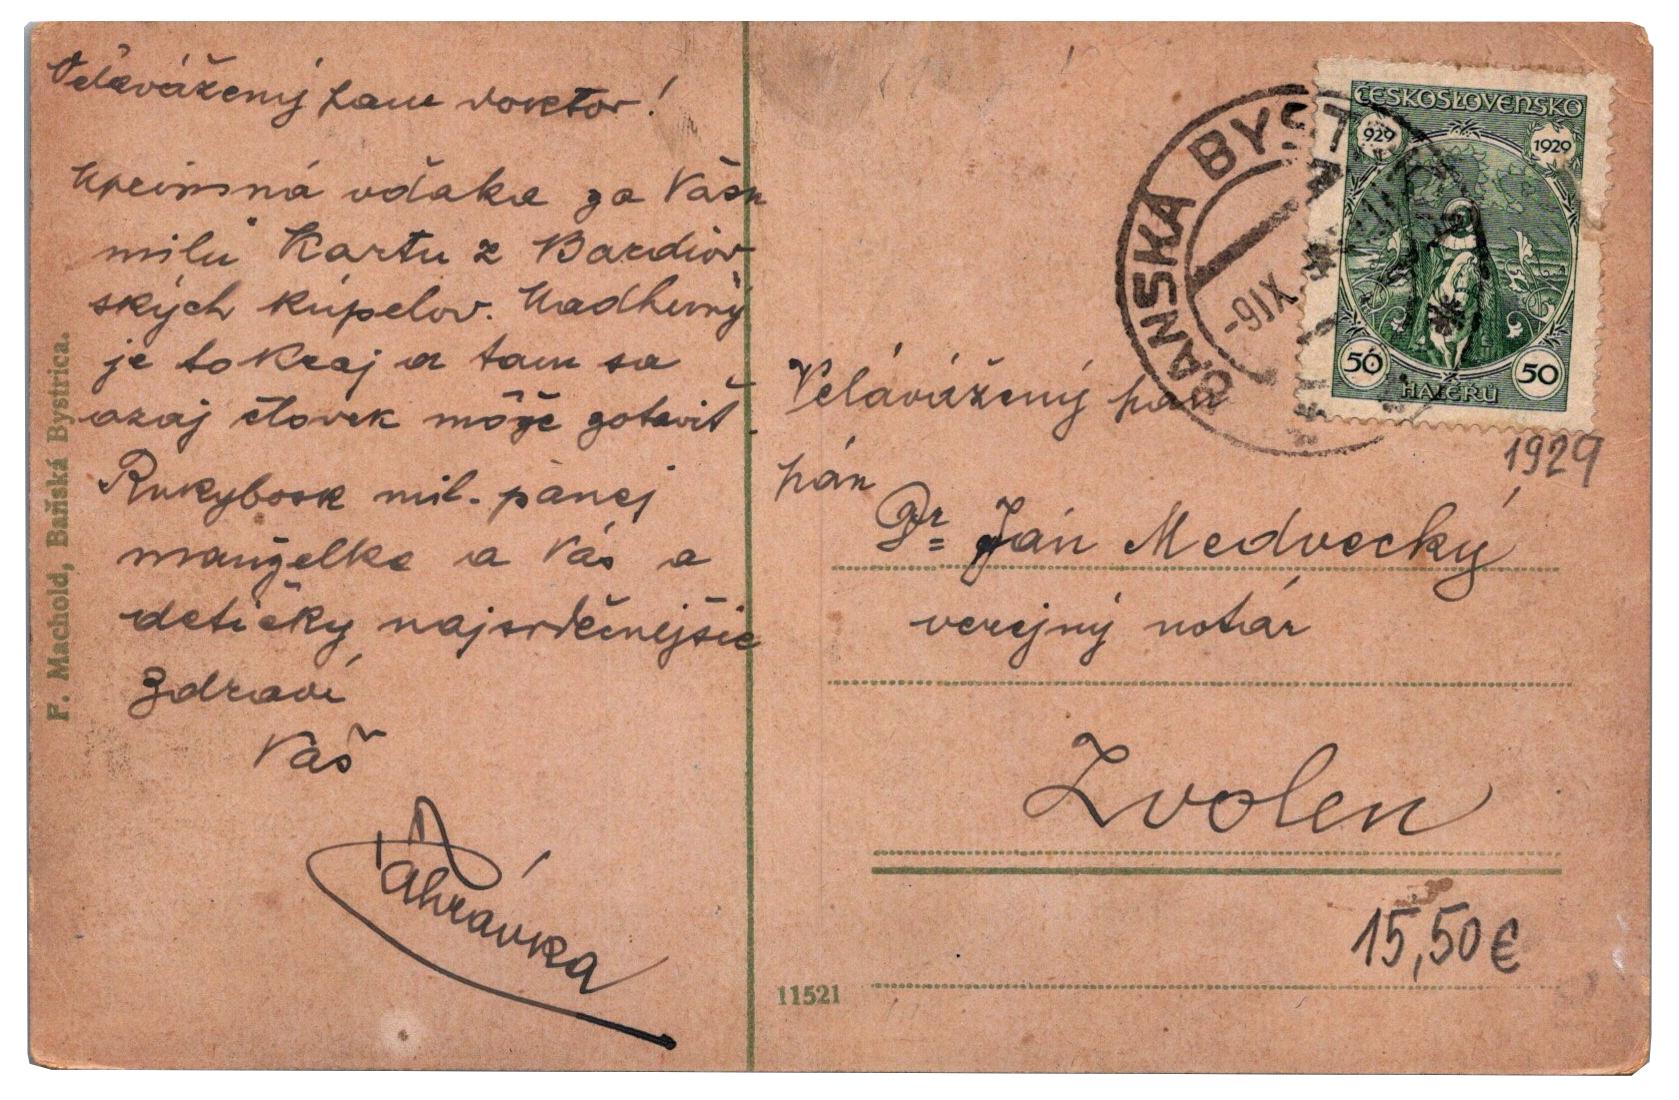 Veľavážený pane doktor!
Úprimná vďaka za Vašu
milú kartu z Bardiov
ských kúpelov. Nádherný
je to kraj a tam sa
ozaj človek môže zotaviť.
Rukybozk mil. pánej
manželke a Vás a
detičky najsrdečnejšie
zdraví
Váš
F. Machold, Baňská Bystrica.
BANSKÁ BYST
-9IX
ČESKOSLOVENSKO
929 1929
50 50
HALÉŘŮ
1929
Velávážený pán
pán
Dr Ján Medvecký
verejný notár
Zvolen
15,50€
11521